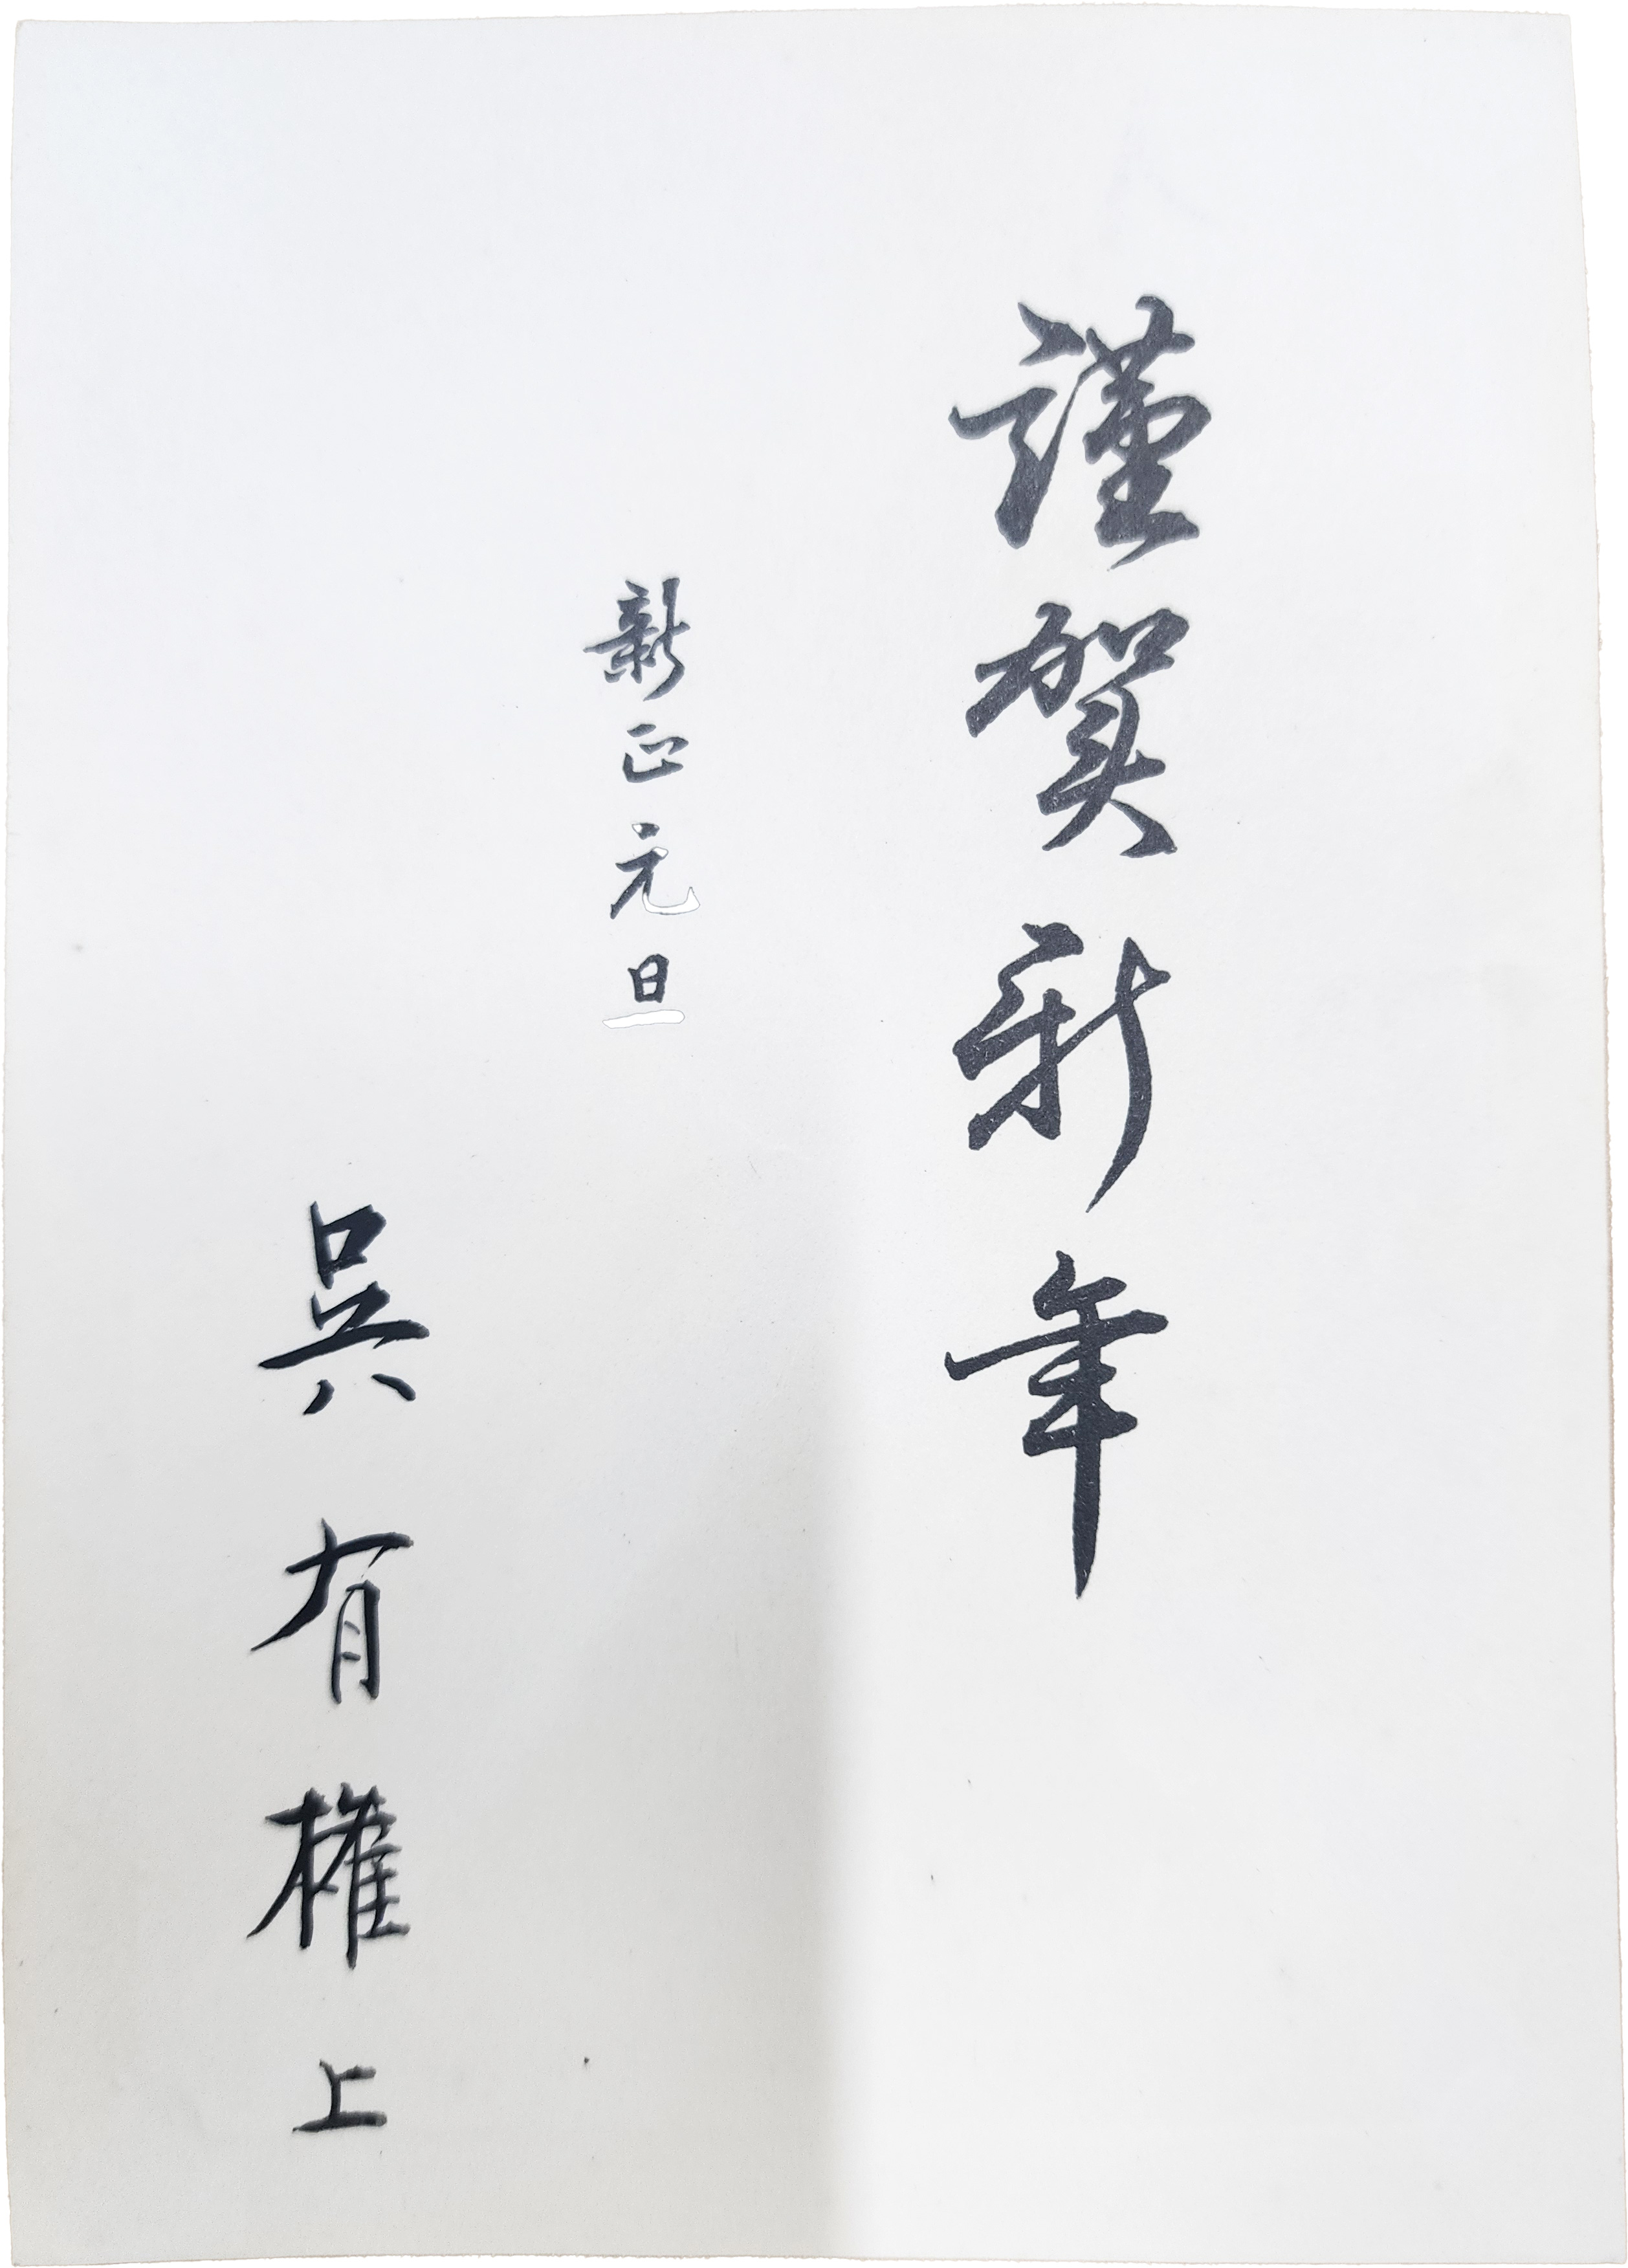 謹賀新年
新正元旦
吳有權上